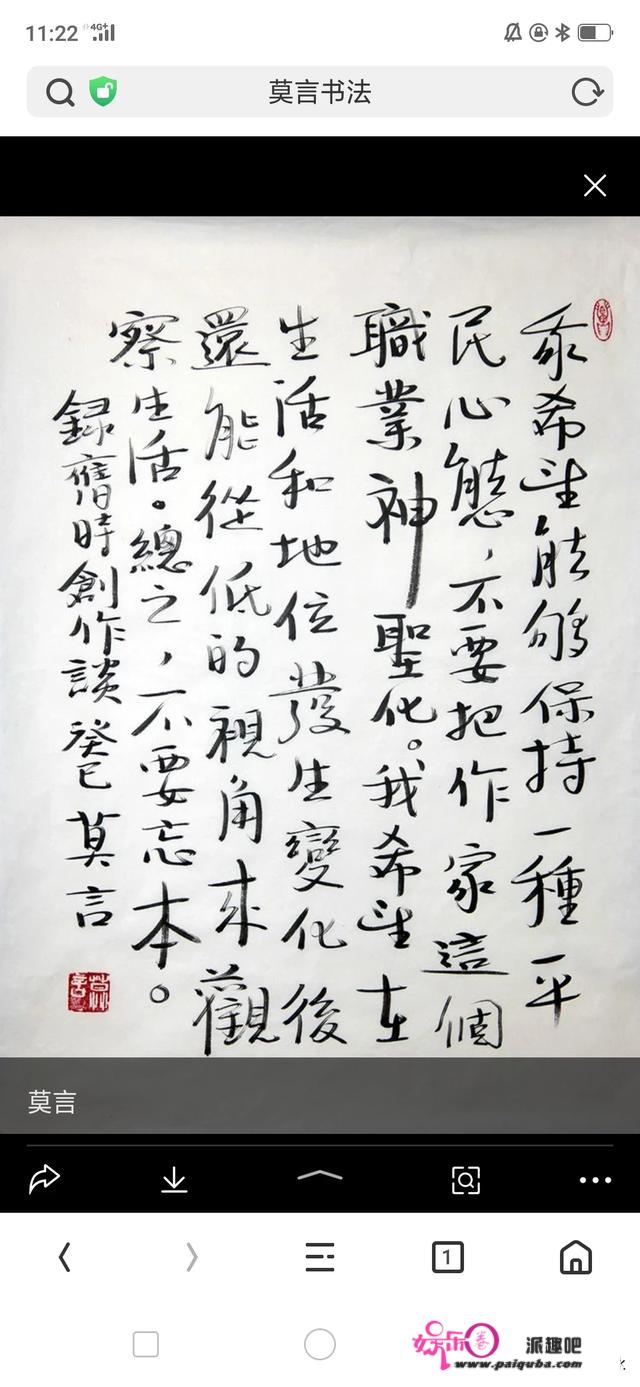 11:22
4G+
莫言书法
我希望能够保持一種平
民心態，不要把作家這個
職業神聖化。我希望在
生活和地位發生變化後
還能從低的視角來觀
察生活。總之，不要忘本。
録舊時創作談 癸巳 莫言
莫言
莫言
1
娱乐圈
派趣吧
www.paiquba.com